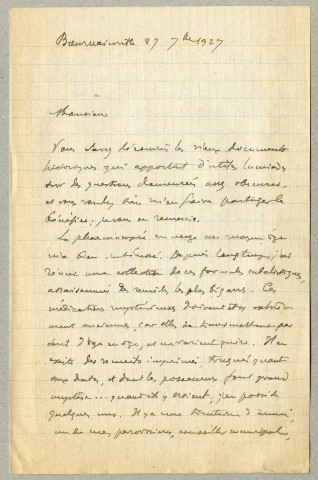 27 7bre 1927
Monsieur
Vous avez découvert les vieux documents
historiques qui apportent d'utiles lumières
sur des questions demeurées assez obscures,
et vous voulez bien m'en faire partager le
bénéfice; je vous en remercie.
La pharmacopée en usage au moyen âge
m'a bien intéressé. Depuis longtemps j'ai
réuni une collection de ces formules cabalistiques,
assaisonnées des remèdes les plus bizarres. Ces
médications mystérieuses doivent être
ment anciennes, car elles se transmettent par
d'âge en âge, et ne varient guère. Il en
existe des recueils imprimés, truqués quant
aux dates, et dont les possesseurs font grand
mystère... quand ils y croient; j'en possède
quelques uns. Il y a une d'années
un de mes paroissiens, conseiller municipal,